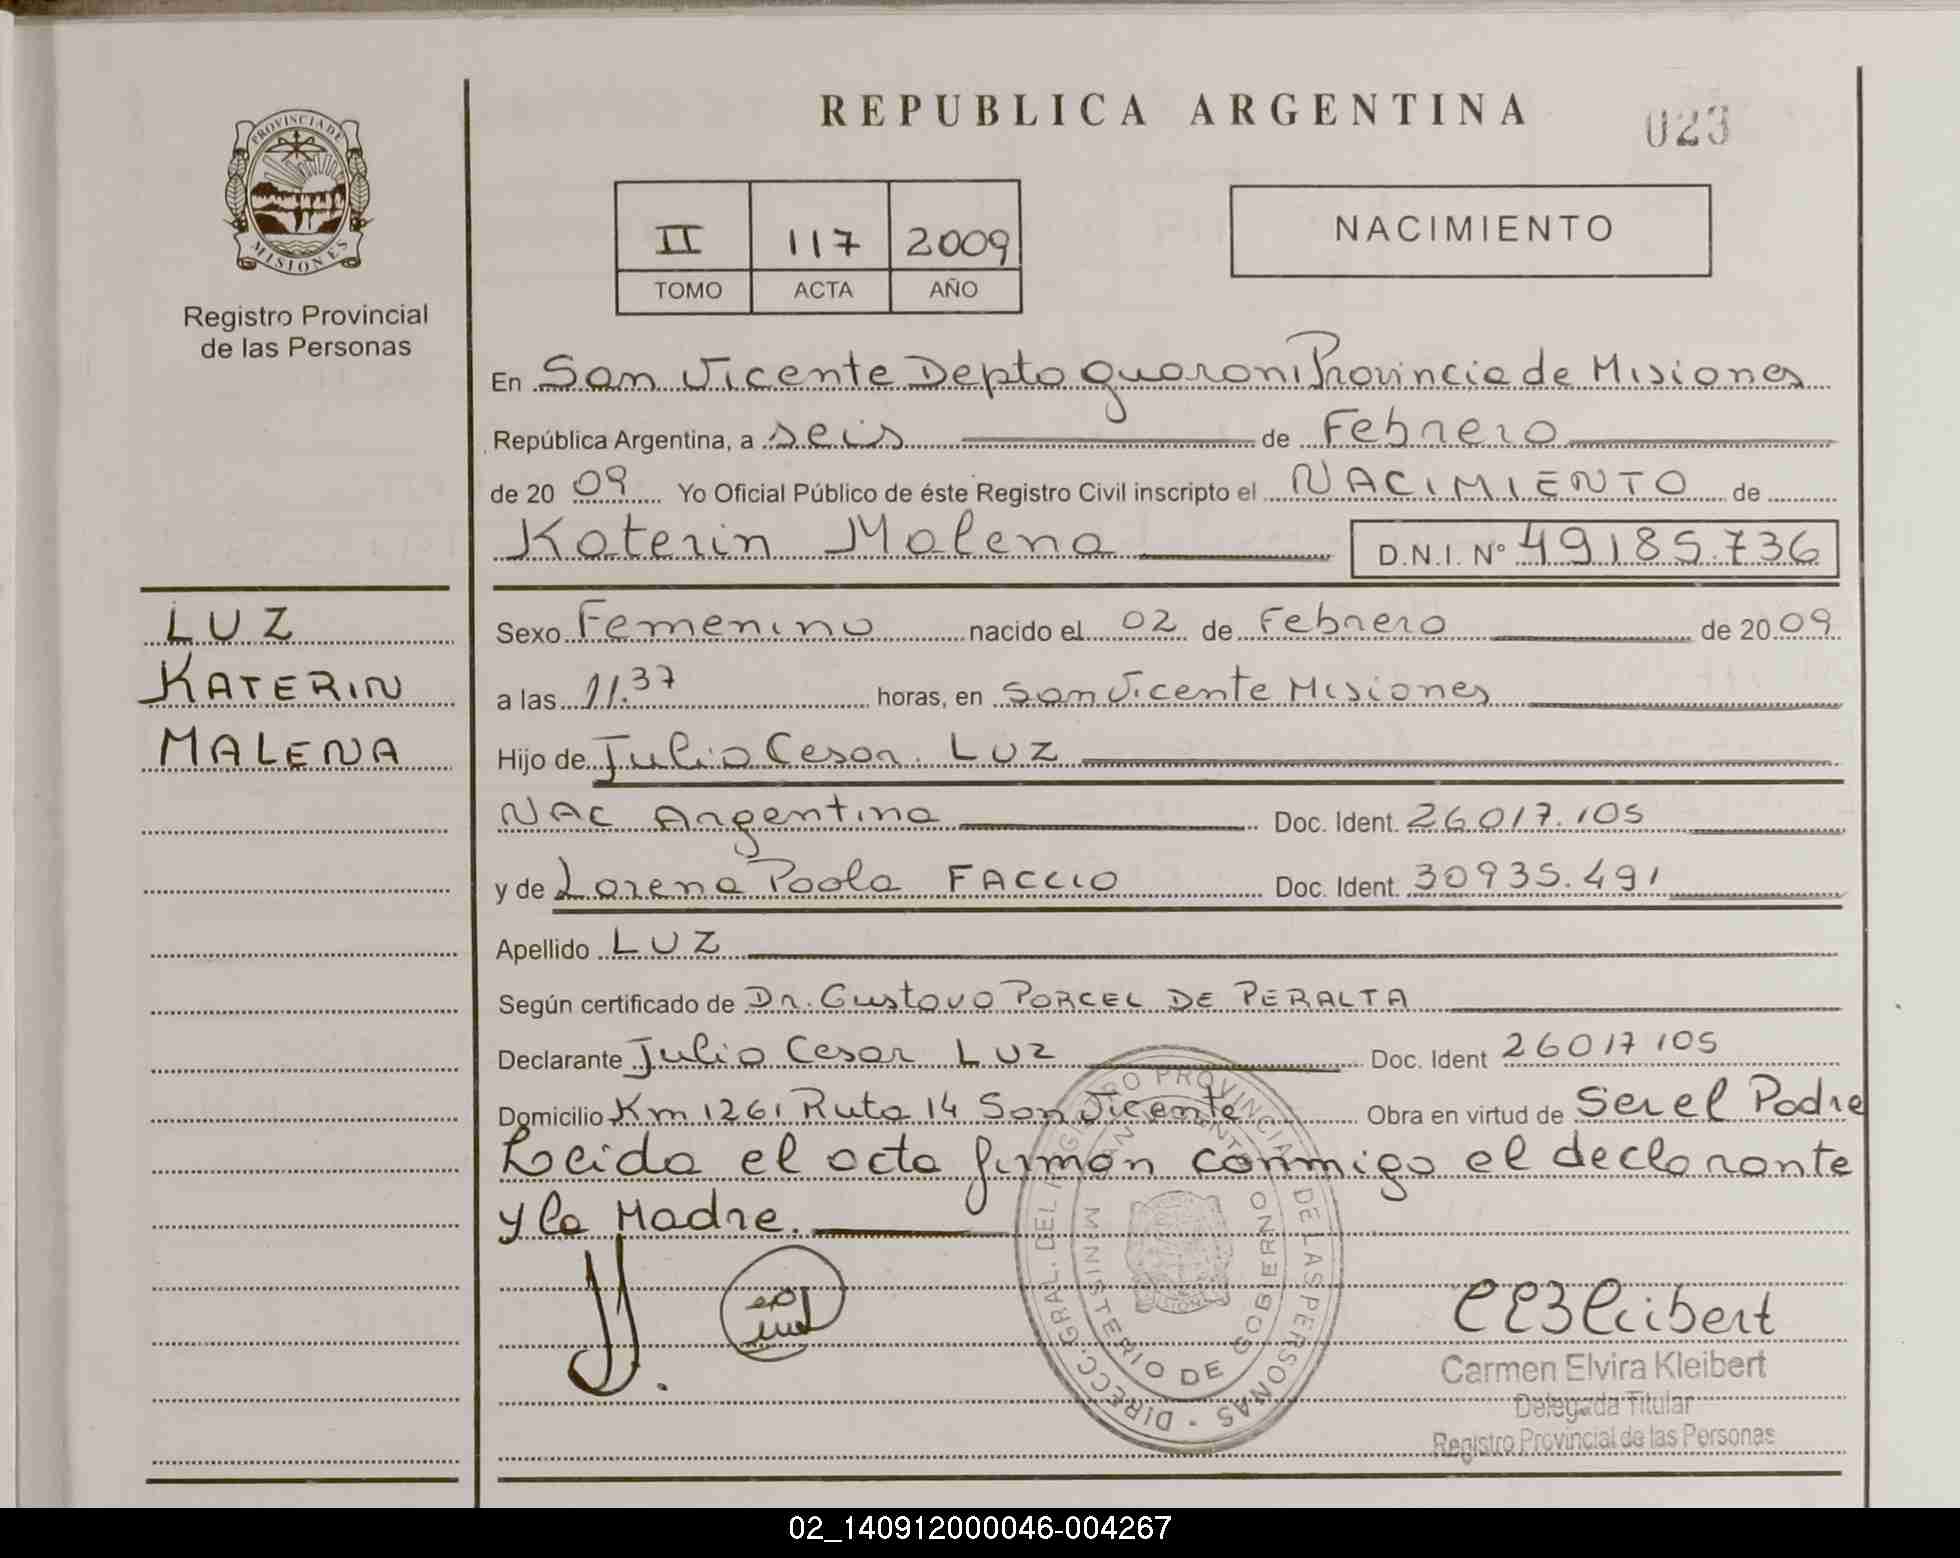 REPUBLICA ARGENTINA
023
PROVINCIA DE MISIONES
Registro Provincial
de las Personas
II 117 2009
TOMO ACTA AÑO
NACIMIENTO
En San Vicente Depto Guarani Provincia de Misiones
República Argentina, a seis de Febrero
de 2009 Yo Oficial Público de éste Registro Civil inscripto el NACIMIENTO de
Katerin Malena D.N.I. Nº 49185.736
LUZ
KATERIN
MALENA
Sexo Femenino nacido el 02 de Febrero de 2009
a las 11.37 horas, en San Vicente Misiones
Hijo de Julio Cesar LUZ
NAC Argentina Doc. Ident. 26017.105
y de Lorena Paola FACCIO Doc. Ident. 30935.491
Apellido LUZ
Según certificado de Dr. Gustavo PORCEL DE PERALTA
Declarante Julio Cesar LUZ Doc. Ident 26017105
Domicilio Km 1261 Ruta 14 San Vicente Obra en virtud de Ser el Padre
Leida el acta firman conmigo el declarante
y la Madre.
DIRECC. GRAL. DEL REGISTRO PROVINCIAL DE LAS PERSONAS
MINISTERIO DE GOBIERNO
SAN VICENTE
CEKleibert
Carmen Elvira Kleibert
Delegada Titular
Registro Provincial de las Personas
02_140912000046-004267